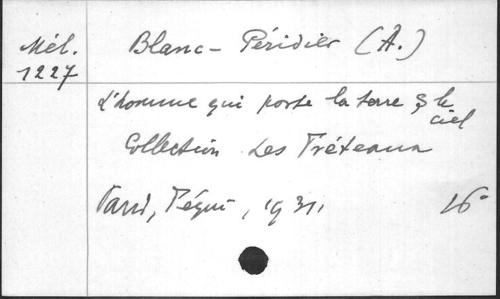 Mél.
1227
Blanc-Péridier (A.)
L'homme qui porte la terre & le
ciel
Collection Les Tréteaux
Paris, Téqui, 1931,
16°